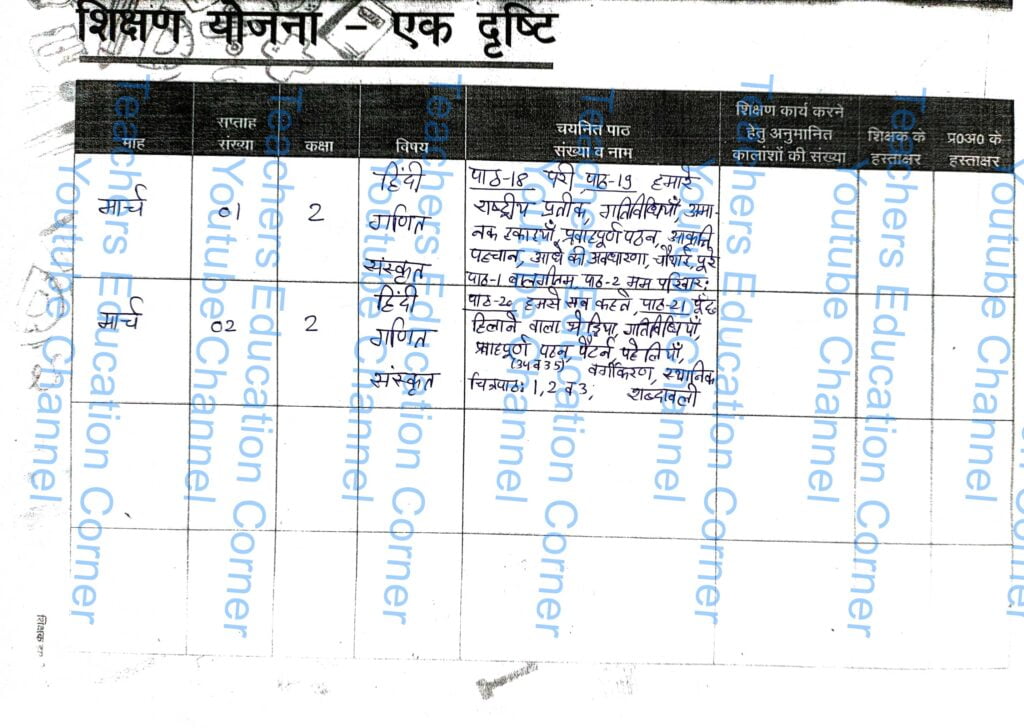 शिक्षण योजना – एक दृष्टि
माह
सप्ताह
संख्या
कक्षा
विषय
चयनित पाठ
संख्या व नाम
शिक्षण कार्य करने
हेतु अनुमानित
कालांशों की संख्या
शिक्षक के
हस्ताक्षर
प्र०अ० के
हस्ताक्षर
मार्च
01
2
हिंदी
गणित
संस्कृत
पाठ-18 परी पाठ-19 हमारे
राष्ट्रीय प्रतीक, गतिविधियाँ, अमा-
नक इकाइयाँ, प्रवाहपूर्ण पठन, आकृति
पहचान, आधे की अवधारणा, चौथाई, पूरे
पाठ-1 बालगीतम्, पाठ-2 मम परिवारः
मार्च
02
2
हिंदी
गणित
संस्कृत
पाठ-20 हमसे सब कहते, पाठ-21 पूँछ
हिलाने वाला भेड़िया, गतिविधियाँ,
प्रवाहपूर्ण पठन, पैटर्न, पहेलियाँ,
(34 व 35) वर्गीकरण, स्थानिक
चित्रपाठः 1, 2 व 3, शब्दावली
शिक्षक
Teachers Education Corner
Youtube Channel
Teachers Education Corner
Youtube Channel
Teachers Education Corner
Youtube Channel
Teachers Education Corner
Youtube Channel
Teachers Education Corner
Youtube Channel
Teachers Education Corner
Youtube Channel